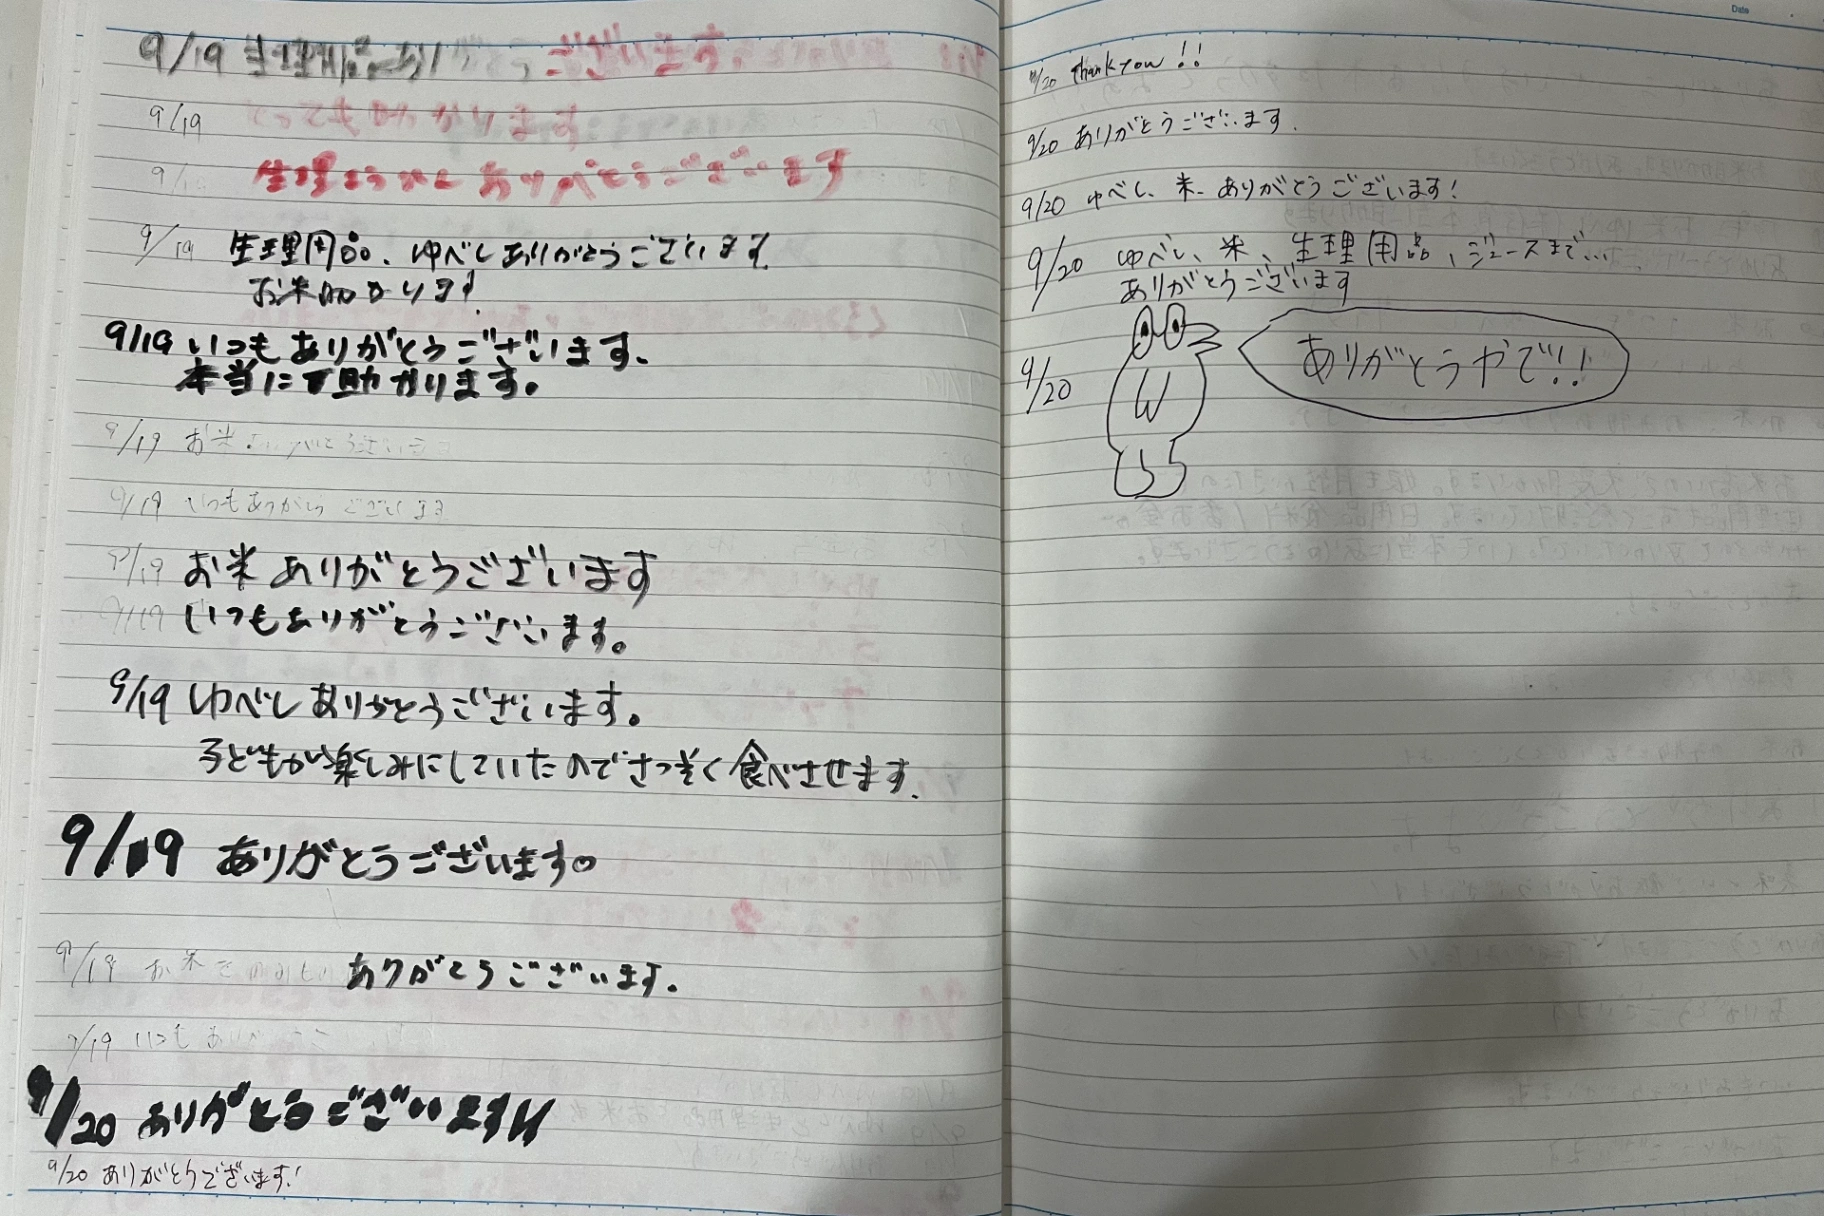 9/19 生理用品ありがとうございます
9/19 とっても助かります
9/19 生理 ありがとうございます
9/19 生理用品、ゆべしありがとうございます
お米助かります!
9/19 いつもありがとうございます。
本当に助かります。
9/19 お米
9/19 いつもありがとうございます
9/19 お米ありがとうございます
9/19 いつもありがとうございます。
9/19 ゆべしありがとうございます。
子どもが楽しみにしていたのでさっそく食べさせます.
9/19 ありがとうございます。
9/19 お米 ありがとうございます.
9/19 いつも
9/20 ありがとうございます!!
9/20 ありがとうございます!
Date
9/20 thank you!!
9/20 ありがとうございます.
9/20 ゆべし、米、ありがとうございます!
9/20 ゆべし、米、生理用品、ジュースまで...
ありがとうございます
9/20 W ありがとうやで!!